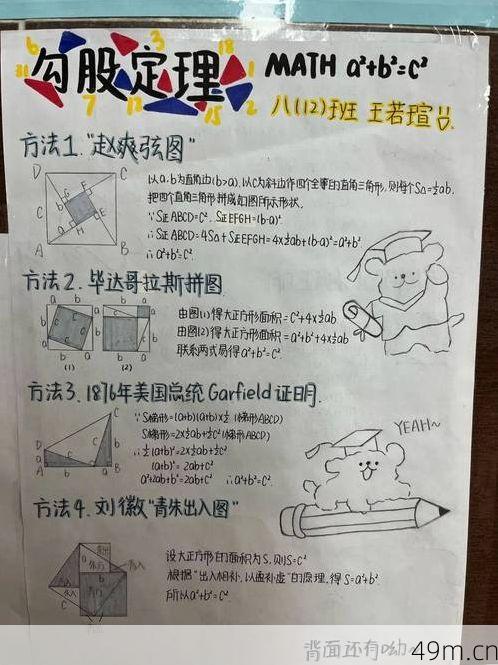 勾股定理 MATH a²+b²=c²
八(12)班 王若瑄
方法1."赵爽弦图"
以a.b为直角边(b>a),以c为斜边作四个全等的直角三角形,则每个S△=½ab,
把四个直角三角形拼成如图所示形状.
∵S正ABCD=c², S正EFGH=(b-a)²
∴S正ABCD=4S△+S正EFGH=4×½ab+(b-a)²=a²+b²
∴a²+b²=c².
方法2.毕达哥拉斯拼图
(1) (2)
由图(1)得大正方形面积=c²+4×½ab
由图(2)得大正方形面积=a²+b²+4×½ab
联系两式易得a²+b²=c².
方法3.1876年美国总统Garfield证明.
∵S梯形=(a+b)(a+b)×½ (梯形ABCD)
S梯形=2×½ab+½c² (梯形ABCD)
∴½(a+b)²=2×½ab+½c²
(a+b)²=2ab+c²
a²+2ab+b²=2ab+c² ∴a²+b²=c².
YEAH~
方法4.刘徽"青朱出入图"
设大正方形的面积为S,则S=c²
根据"出入相补,以盈补虚"的原理,得S=a²+b²
所以a²+b²=c²
背面还有呦
49m.cn